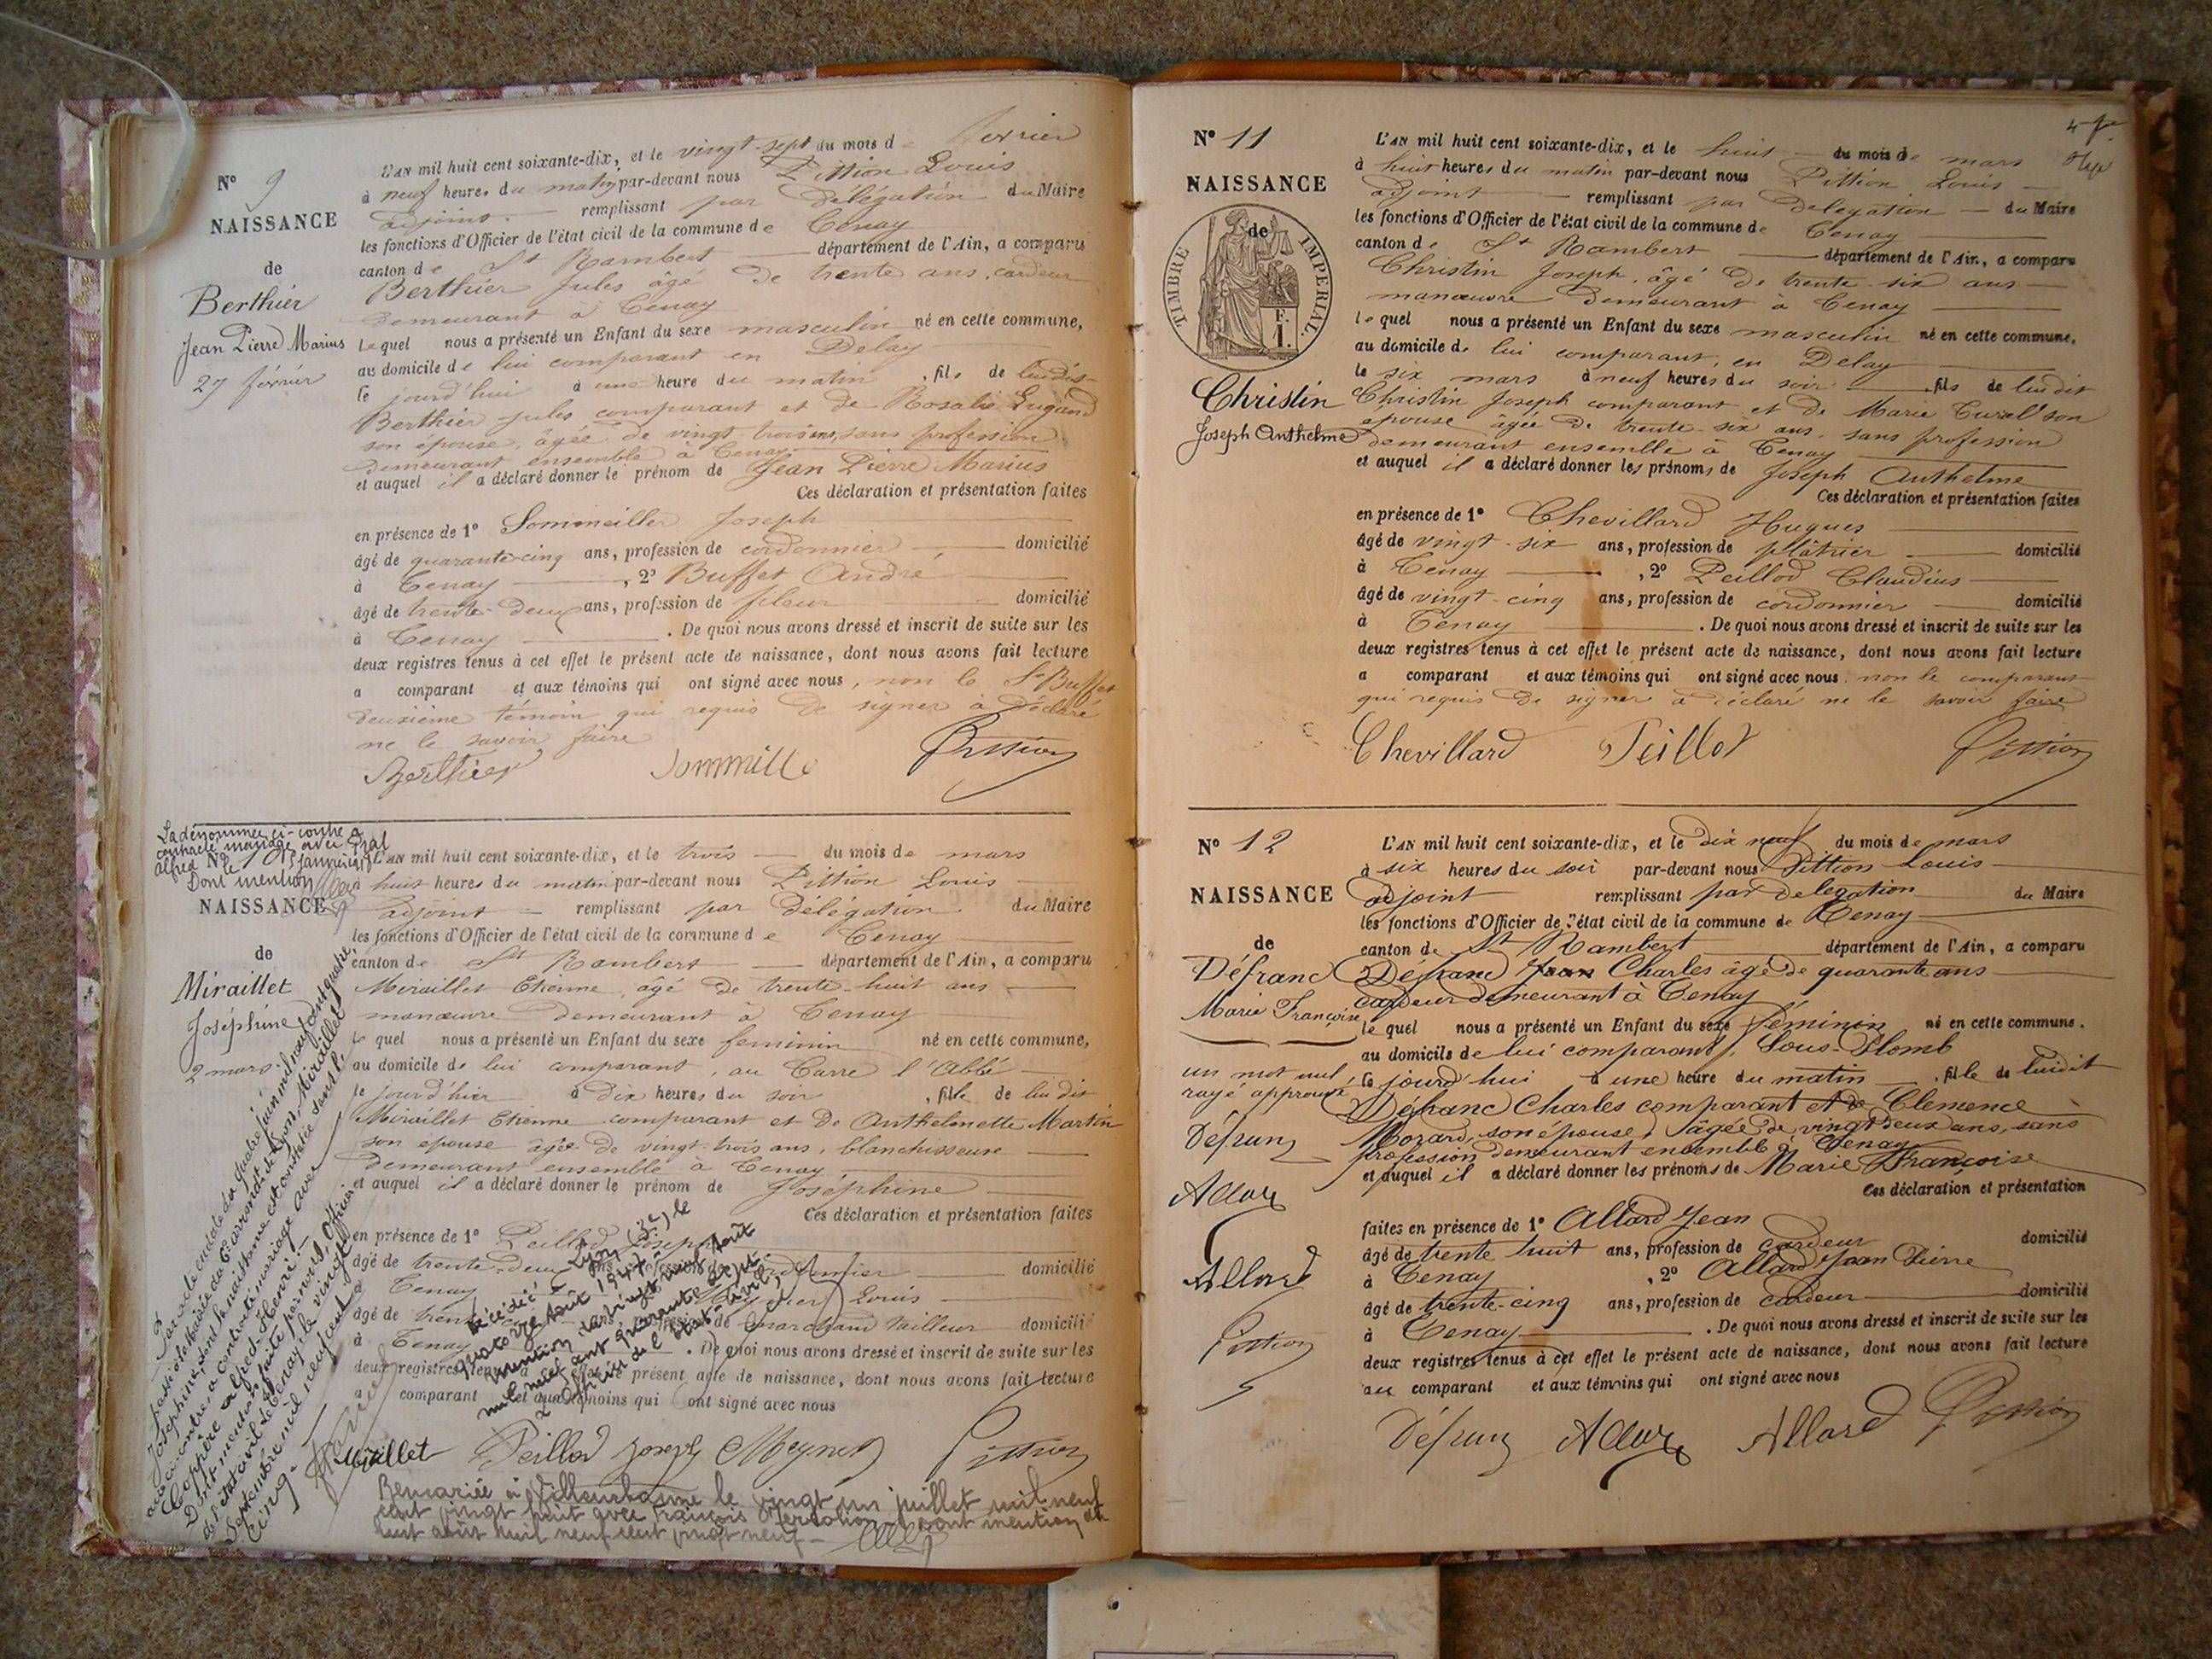 N° 9
NAISSANCE
de
Berthier
Jean Pierre Marius
27 février
L'AN mil huit cent soixante-dix, et le vingt-sept du mois de février
à neuf heures du matin par-devant nous Pittion Louis
adjoint remplissant par délégation du Maire
les fonctions d'Officier de l'état civil de la commune de Tenay
canton de St Rambert département de l'Ain, a comparu
Berthier Jules âgé de trente ans, cardeur
demeurant à Tenay
lequel nous a présenté un Enfant du sexe masculin né en cette commune,
au domicile de lui comparant en Delay
le jourd'hui à une heure du matin, fils de lui dit
Berthier Jules comparant et de Rosalie Lugand
son épouse, âgée de vingt trois ans, sans profession
demeurant ensemble à Tenay
et auquel il a déclaré donner le prénom de Jean Pierre Marius
Ces déclaration et présentation faites
en présence de 1° Sommeiller Joseph
âgé de quarante-cinq ans, profession de cordonnier domicilié
à Tenay, 2° Buffet André
âgé de trente-deux ans, profession de fileur domicilié
à Tenay. De quoi nous avons dressé et inscrit de suite sur les
deux registres tenus à cet effet le présent acte de naissance, dont nous avons fait lecture
a comparant et aux témoins qui ont signé avec nous, non le Sr Buffet
deuxième témoin qui requis de signer à déclaré
ne le savoir faire
Berthier Sommille Pittion
La dénommée ci-contre a
contracté mariage avec
Alfred
Dont mention
N° 10
NAISSANCE
de
Miraillet
Joséphine
2 mars
L'AN mil huit cent soixante-dix, et le trois du mois de mars
à huit heures du matin par-devant nous Pittion Louis
adjoint remplissant par délégation du Maire
les fonctions d'Officier de l'état civil de la commune de Tenay
canton de St Rambert département de l'Ain, a comparu
Miraillet Etienne, agé de trente-huit ans
manœuvre demeurant à Tenay
le quel nous a présenté un Enfant du sexe feminin né en cette commune,
au domicile de lui comparant, au Carre l'Abbé
le jour d'hier à dix heures du soir, fille de lui dit
Miraillet Etienne comparant et de Anthelmette Martin
son epouse âgée de vingt-trois ans, blanchisseuse
demeurant ensemble à Tenay
et auquel il a déclaré donner le prénom de Joséphine
Ces déclaration et présentation faites
en présence de 1° Peillod Joseph
âgé de trente-deux ans, profession de cordonnier domicilié
à Tenay Meynier Louis
âgé de trente de marchand tailleur domicilié
à Tenay. De quoi nous avons dressé et inscrit de suite sur les
deux registres tenus à cet effet le présent acte de naissance, dont nous avons fait lecture
a comparant et aux témoins qui ont signé avec nous
Miraillet Peillod Joseph Meynier Pittion
Décédée à Lyon (3e) le
quatorze août 1947
mention vingt neuf août
mil neuf cent quarante sept
L'officier de l'état-civil,
Remariée à Villeurbanne le vingt un juillet mil neuf
cent vingt huit avec François dont mention du
huit août mil neuf cent vingt neuf
Par acte en date du quatre juin mil neuf cent quatre
passé à la Mairie du 6e arrond. de Lyon, Miraillet
Joséphine, dont la naissance est constatée dans l'
acte ci-contre a contracté mariage avec
Coppère Alfred-Henri.
Dont mention faite par nous, Officier
de l'état civil de Tenay le vingt
Septembre mil neuf cent
cinq.
4e fe
N° 11
NAISSANCE
de
TIMBRE IMPERIAL
Christin
Joseph Anthelme
L'AN mil huit cent soixante-dix, et le huit du mois de mars
à huit heures du matin par-devant nous Pittion Louis
adjoint remplissant par delegation du Maire
les fonctions d'Officier de l'état civil de la commune de Tenay
canton de St Rambert département de l'Ain, a comparu
Christin Joseph, âgé de trente-six ans
manœuvre demeurant à Tenay
lequel nous a présenté un Enfant du sexe masculin né en cette commune,
au domicile de lui comparant, en Delay
le six mars à neuf heures du soir, fils de lui dit
Christin Joseph comparant et de Marie son
épouse âgée de trente-six ans, sans profession
demeurant ensemble à Tenay
et auquel il a déclaré donner les prénoms de Joseph Anthelme
Ces déclaration et présentation faites
en présence de 1° Chevillard Hugues
âgé de vingt-six ans, profession de plâtrier domicilié
à Tenay, 2° Peillod Claudius
âgé de vingt-cinq ans, profession de cordonnier domicilié
à Tenay. De quoi nous avons dressé et inscrit de suite sur les
deux registres tenus à cet effet le présent acte de naissance, dont nous avons fait lecture
a comparant et aux témoins qui ont signé avec nous non le comparant
qui requis de signer a déclaré ne le savoir faire
Chevillard Peillot Pittion
N° 12
NAISSANCE
de
Défranc
Marie Françoise
un mot nul
rayé approuvé
Défranc
Allard
Allard
Pittion
L'AN mil huit cent soixante-dix, et le dix neuf du mois de mars
à six heures du soir par-devant nous Pittion Louis
adjoint remplissant par delegation du Maire
les fonctions d'Officier de l'état civil de la commune de Tenay
canton de St Rambert département de l'Ain, a comparu
Défranc Jean Charles âgé de quarante ans
cardeur demeurant à Tenay
le quel nous a présenté un Enfant du sexe féminin né en cette commune,
au domicile de lui comparant, Sous-Plomb
le jourd'hui à une heure du matin, fille de lui dit
Défranc Charles comparant et de Clemence
Morard, son épouse, âgée de vingt deux ans, sans
profession demeurant ensemble à Tenay
et auquel il a déclaré donner les prénoms de Marie Françoise
Ces déclaration et présentation
faites en présence de 1° Allard Jean
âgé de trente huit ans, profession de cardeur domicilié
à Tenay, 2° Allard Jean Pierre
âgé de trente-cinq ans, profession de cardeur domicilié
à Tenay. De quoi nous avons dressé et inscrit de suite sur les
deux registres tenus à cet effet le présent acte de naissance, dont nous avons fait lecture
au comparant et aux témoins qui ont signé avec nous
Défranc Allard Allard Pittion